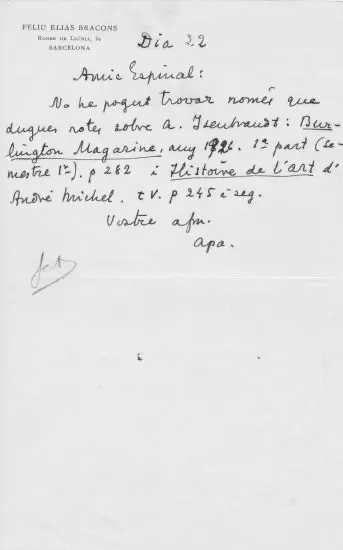 FELIU ELIAS BRACONS
ROGER DE LAURIA, 39
BARCELONA
Dia 22
Amic Espinal:
No he pogut trovar només que
dugues notes sobre A. Isenbrandt: Bur-
lington Magazine, any 1926. 1ª part (se-
mestre 1er). p 282 i Histoire de l'art d'
André Michel. t V. p 245 i seg.
Vostre afm.
Apa.